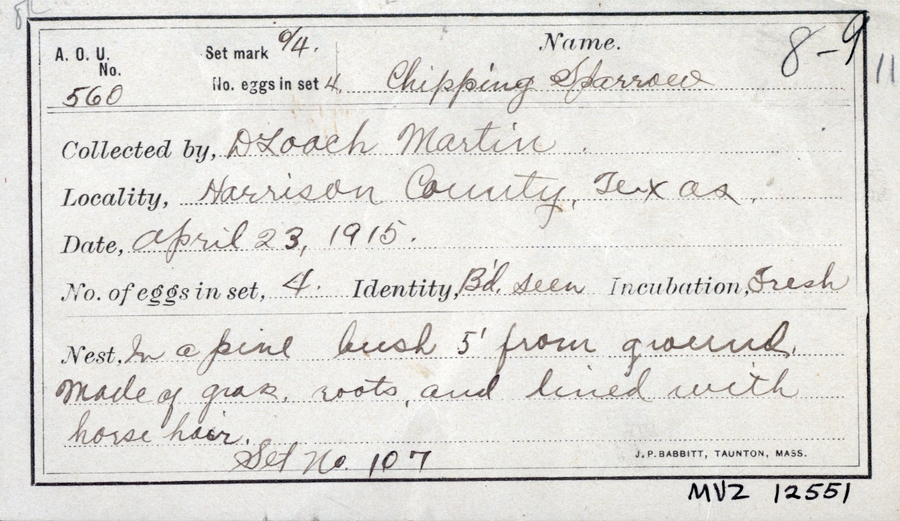 A. O. U. No. 560
Set mark 0/4.
No. eggs in set 4.
Name.
Chipping Sparrow
8-9
11
Collected by, D'Loach Martin.
Locality, Harrison County, Texas.
Date, April 23, 1915.
No. of eggs in set, 4. Identity, B'd. seen Incubation, Fresh
Nest. In a pine bush 5' from ground.
Made of gras, roots, and lined with
horse hair.
Set No. 107
J. P. BABBITT, TAUNTON, MASS.
MVZ 12551